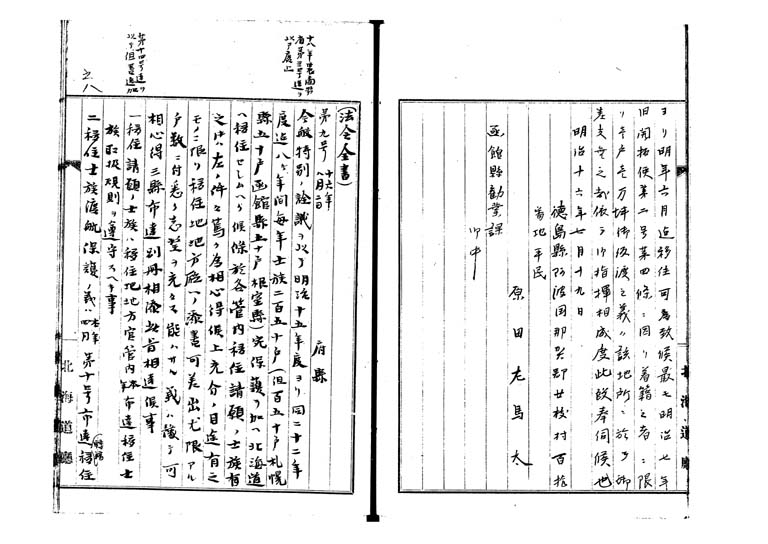 ヨリ明年六月迄移住可為致候最モ明治七年
旧開拓使第二号第四條ニ因リ着籍之者ニ限
リ壱戸壱万坪御仮渡之義ハ該地所ニ於テ御
差支無之哉依テ御指揮相成度此段奉伺候也
明治十六年七月十九日
徳島縣阿波国那賀郡廿枝村百拾
番地平民
原田左馬太
函館縣勧業課
御中
北海道廳
十八年農商務
省第三号達ヲ
以テ廃止
(法令全書)
第九号 十六年八月二日
府縣
今般特別ノ詮議ヲ以テ明治十五年度ヨリ同二十二年
度迄八ヶ年間毎年士族二百五十戸(但百五十戸札幌
縣五十戸函館縣五十戸根室縣)充保護ヲ加ヘ北海道
ヘ移住セシムヘク候條於各管内移住請願ノ士族有
之時ハ左ノ件々篤ク為相心得候上充分ノ目途有之
モノニ限リ移住地地方廳ヘノ添書可差出尤限アル
戸数ニ付悉ク志望ヲ充タス能ハサル義ハ豫テ可
相心得三縣布達別冊相添此旨相達候事
一移住請願ノ士族ハ移住地地方官管内本年布達移住士
族取扱規則ヲ遵守スヘキ事
二移住士族渡航保護ノ義ハ 四月 第十号布達移住
第十四号達ヲ
以テ但書追加
北海道廳